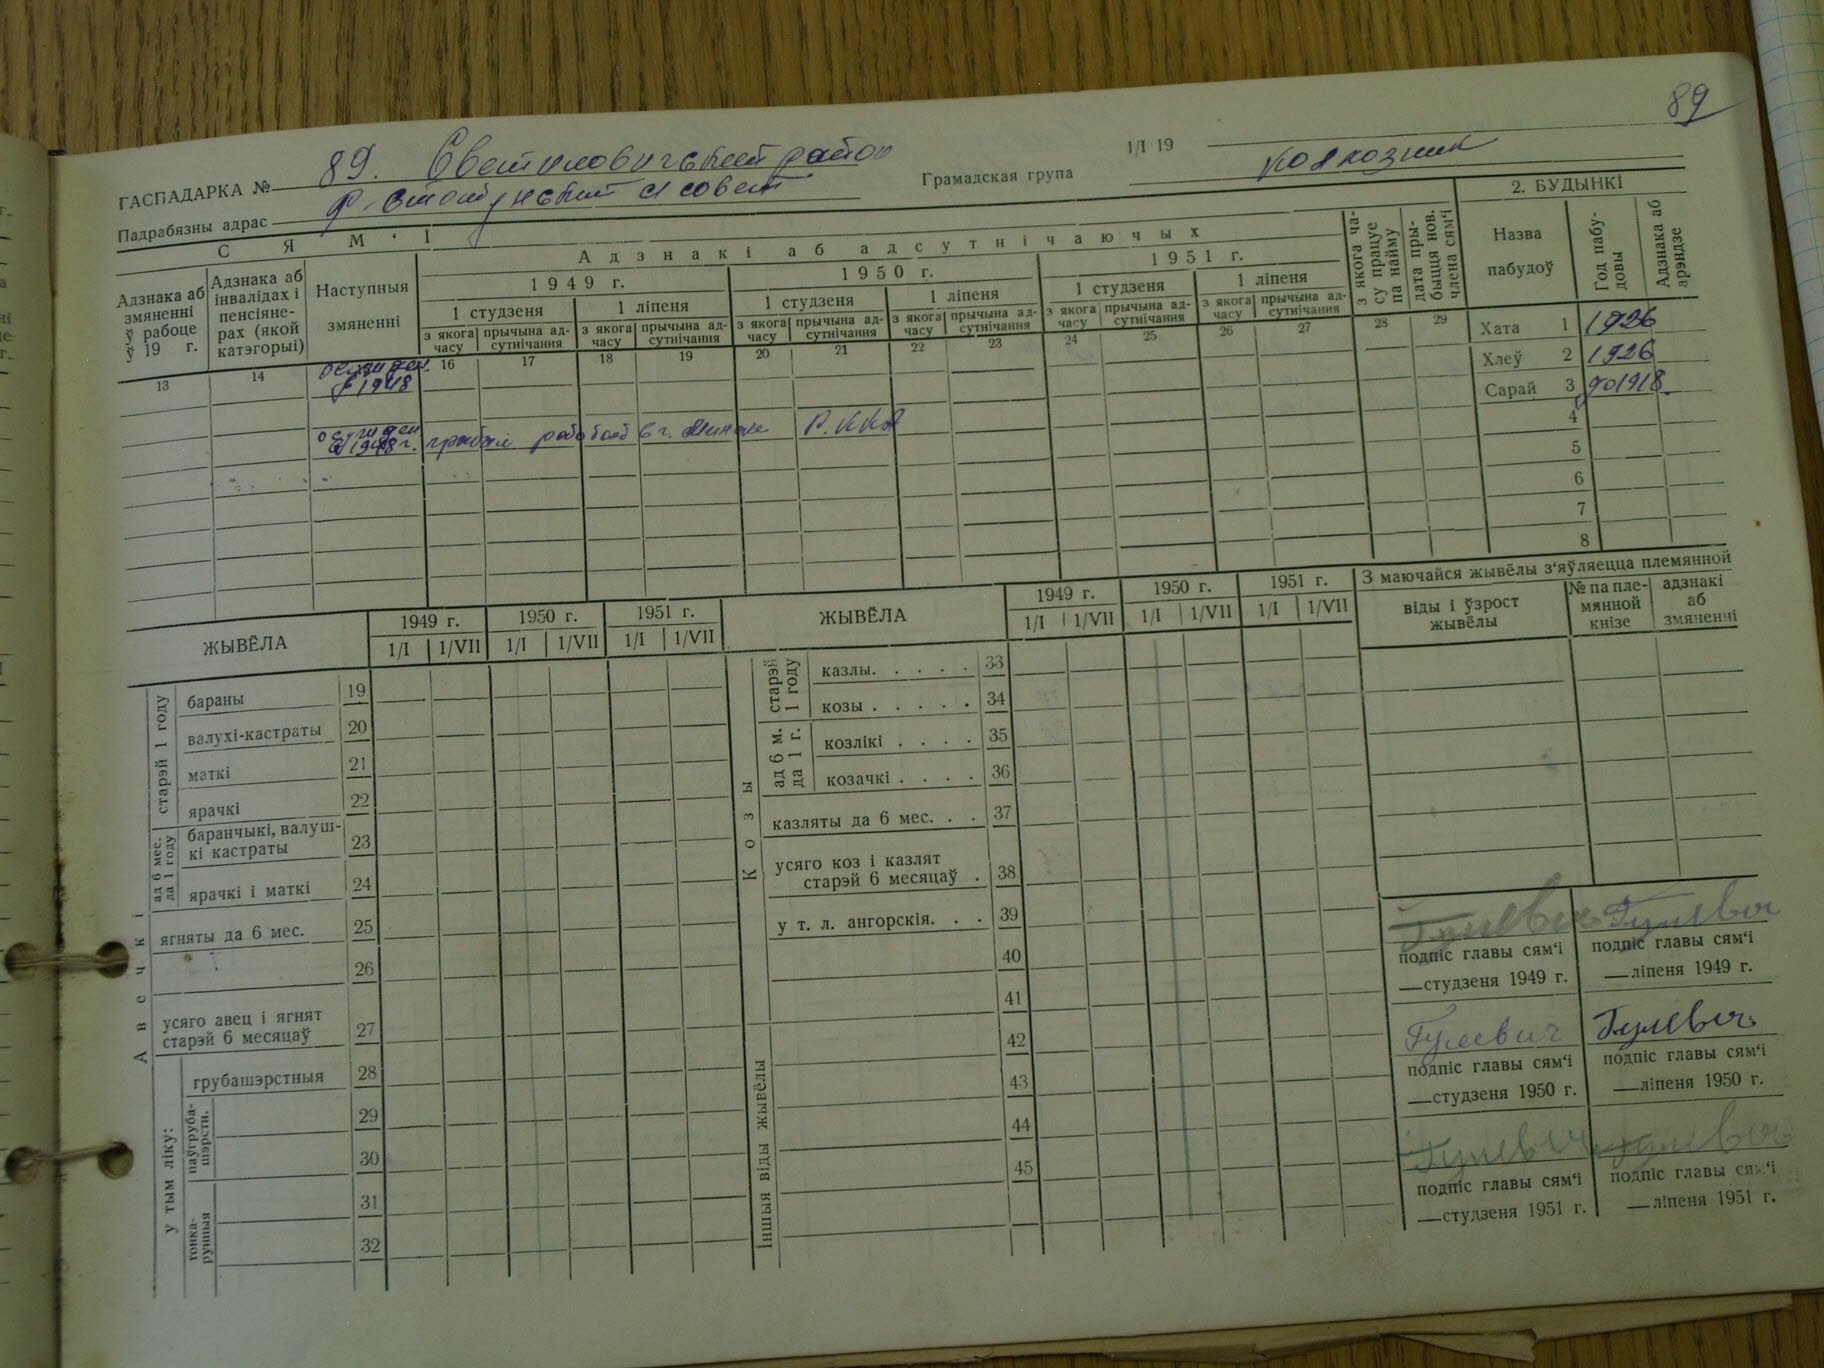 89
ГАСПАДАРКА № 89. Светиловичский район 1/I 19
Падрабязны адрас совет Грамадская група колхозник
СЯМ'І
Адзнакі аб адсутнічаючых
1949 г. 1950 г. 1951 г.
1 студзеня 1 ліпеня 1 студзеня 1 ліпеня 1 студзеня 1 ліпеня
Адзнака аб змяненні ў рабоце ў 19 г.
Адзнака аб інвалідах і пенсіяне-рах (якой катэгорыі)
Наступныя змяненні
з якога часу прычына ад-сутнічання з якога часу прычына ад-сутнічання з якога часу прычына ад-сутнічання з якога часу прычына ад-сутнічання з якога часу прычына ад-сутнічання з якога часу прычына ад-сутнічання
з якога ча-су працуе па найму
дата пры-быцця нов. члена сям'і
13 14 16 17 18 19 20 21 22 23 24 25 26 27 28 29
осужден
в 1948
осужден
в 1948 г. г. Р.ККА
2. БУДЫНКІ
Назва пабудоў
Год пабу-довы
Адзнака аб арэндзе
Хата 1 1926
Хлеў 2 1926
Сарай 3 до 1918.
4
5
6
7
8
ЖЫВЁЛА 1949 г. 1950 г. 1951 г.
1/I 1/VII 1/I 1/VII 1/I 1/VII
Авечкі
старэй 1 году
бараны 19
валухі-кастраты 20
маткі 21
ярачкі 22
ад 6 мес. да 1 году
баранчыкі, валуш-
кі кастраты 23
ярачкі і маткі 24
ягняты да 6 мес. 25
26
усяго авец і ягнят
старэй 6 месяцаў 27
у тым ліку:
грубашэрстныя 28
паўгруба-шэрсн.
29
30
тонка-рунныя
31
32
ЖЫВЁЛА 1949 г. 1950 г. 1951 г.
1/I 1/VII 1/I 1/VII 1/I 1/VII
Козы
старэй 1 году
казлы. . . . . 33
козы . . . . . 34
ад 6 м. да 1 г.
козлікі . . . . 35
козачкі . . . . 36
казляты да 6 мес. . . 37
усяго коз і казлят
старэй 6 месяцаў . 38
у т. л. ангорскія. . . 39
40
41
Іншыя віды жывёлы
42
43
44
45
З маючайся жывёлы з'яўляецца племянной
віды і ўзрост жывёлы
№ па пле-мянной кнізе
адзнакі аб змяненні
Гулевич Гулевич
подпіс главы сям'і подпіс главы сям'і
—студзеня 1949 г. —ліпеня 1949 г.
Гулевич Гулевич
подпіс главы сям'і подпіс главы сям'і
—студзеня 1950 г. —ліпеня 1950 г.
Гулевич Гулевич
подпіс главы сям'і подпіс главы сям'і
—студзеня 1951 г. —ліпеня 1951 г.